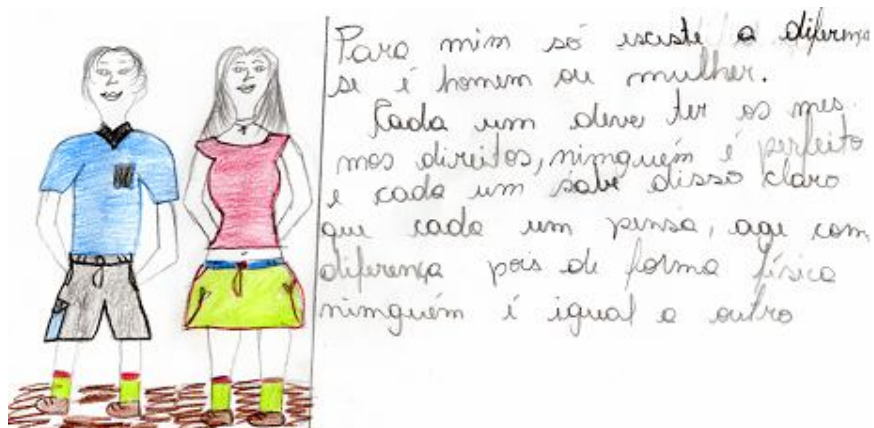 Para mim só esciste a diferença
se é homem ou mulher.
Cada um deve ter os mes-
mos direitos, nimguém é perfeito
e cada um sabe disso claro
que cada um pensa, age com
diferença pois de forma física
nimguém é igual a outro